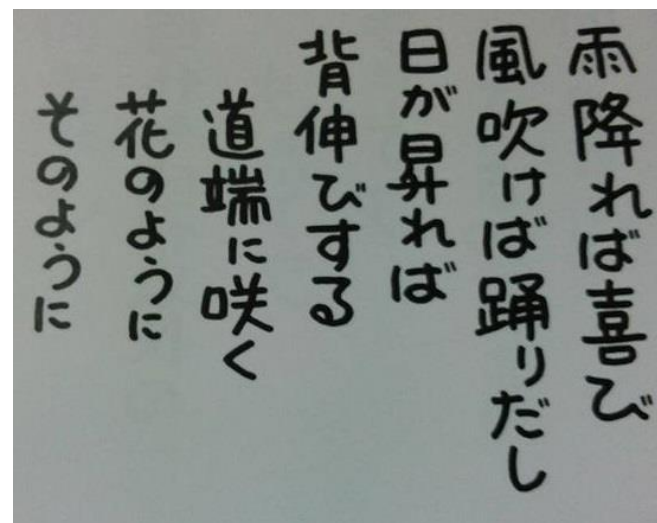 雨降れば喜び
風吹けば踊りだし
日が昇れば
背伸びする
道端に咲く
花のように
そのように